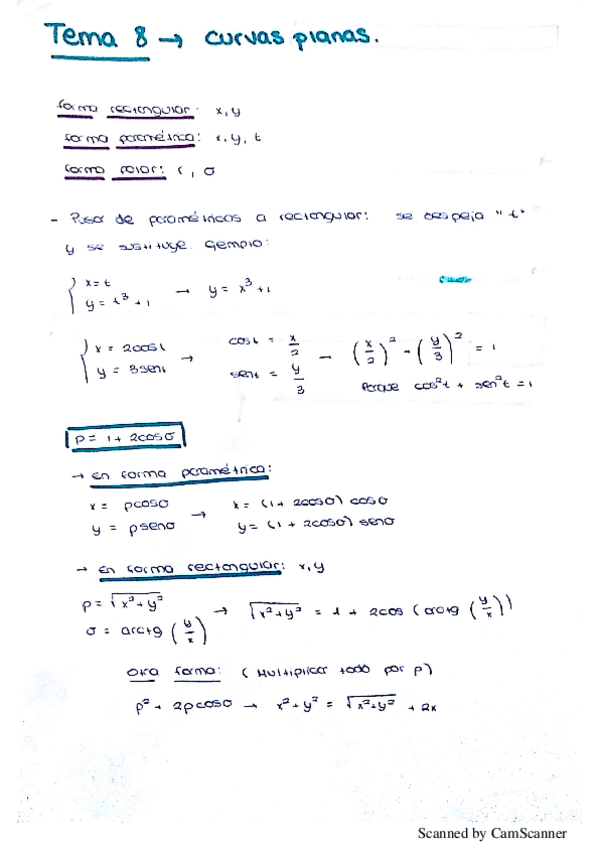 Tema 8 → curvas planas.
forma rectangular: x, y
forma paramétrica: x, y, t
forma polar: r, σ
- Pasar de paramétricas a rectangular: se despeja "t"
y se sustituye. Ejemplo:
{ x = t
y = t³ + 1 → y = x³ + 1
{ x = 2cost
y = 3sent → cost = x/2
sent = y/3 → (x/2)² + (y/3)² = 1
Porque cos²t + sen²t = 1
ρ = 1 + 2cosσ
→ En forma paramétrica:
x = ρcosσ
y = ρsenσ → x = (1 + 2cosσ) cosσ
y = (1 + 2cosσ) senσ
→ En forma rectangular: x, y
ρ = √(x² + y²)
σ = arctg (y/x) → √(x² + y²) = 1 + 2cos (arctg (y/x))
Otra forma: (Multiplicar todo por ρ)
ρ² + 2ρcosσ → x² + y² = √(x² + y²) + 2x
Scanned by CamScanner